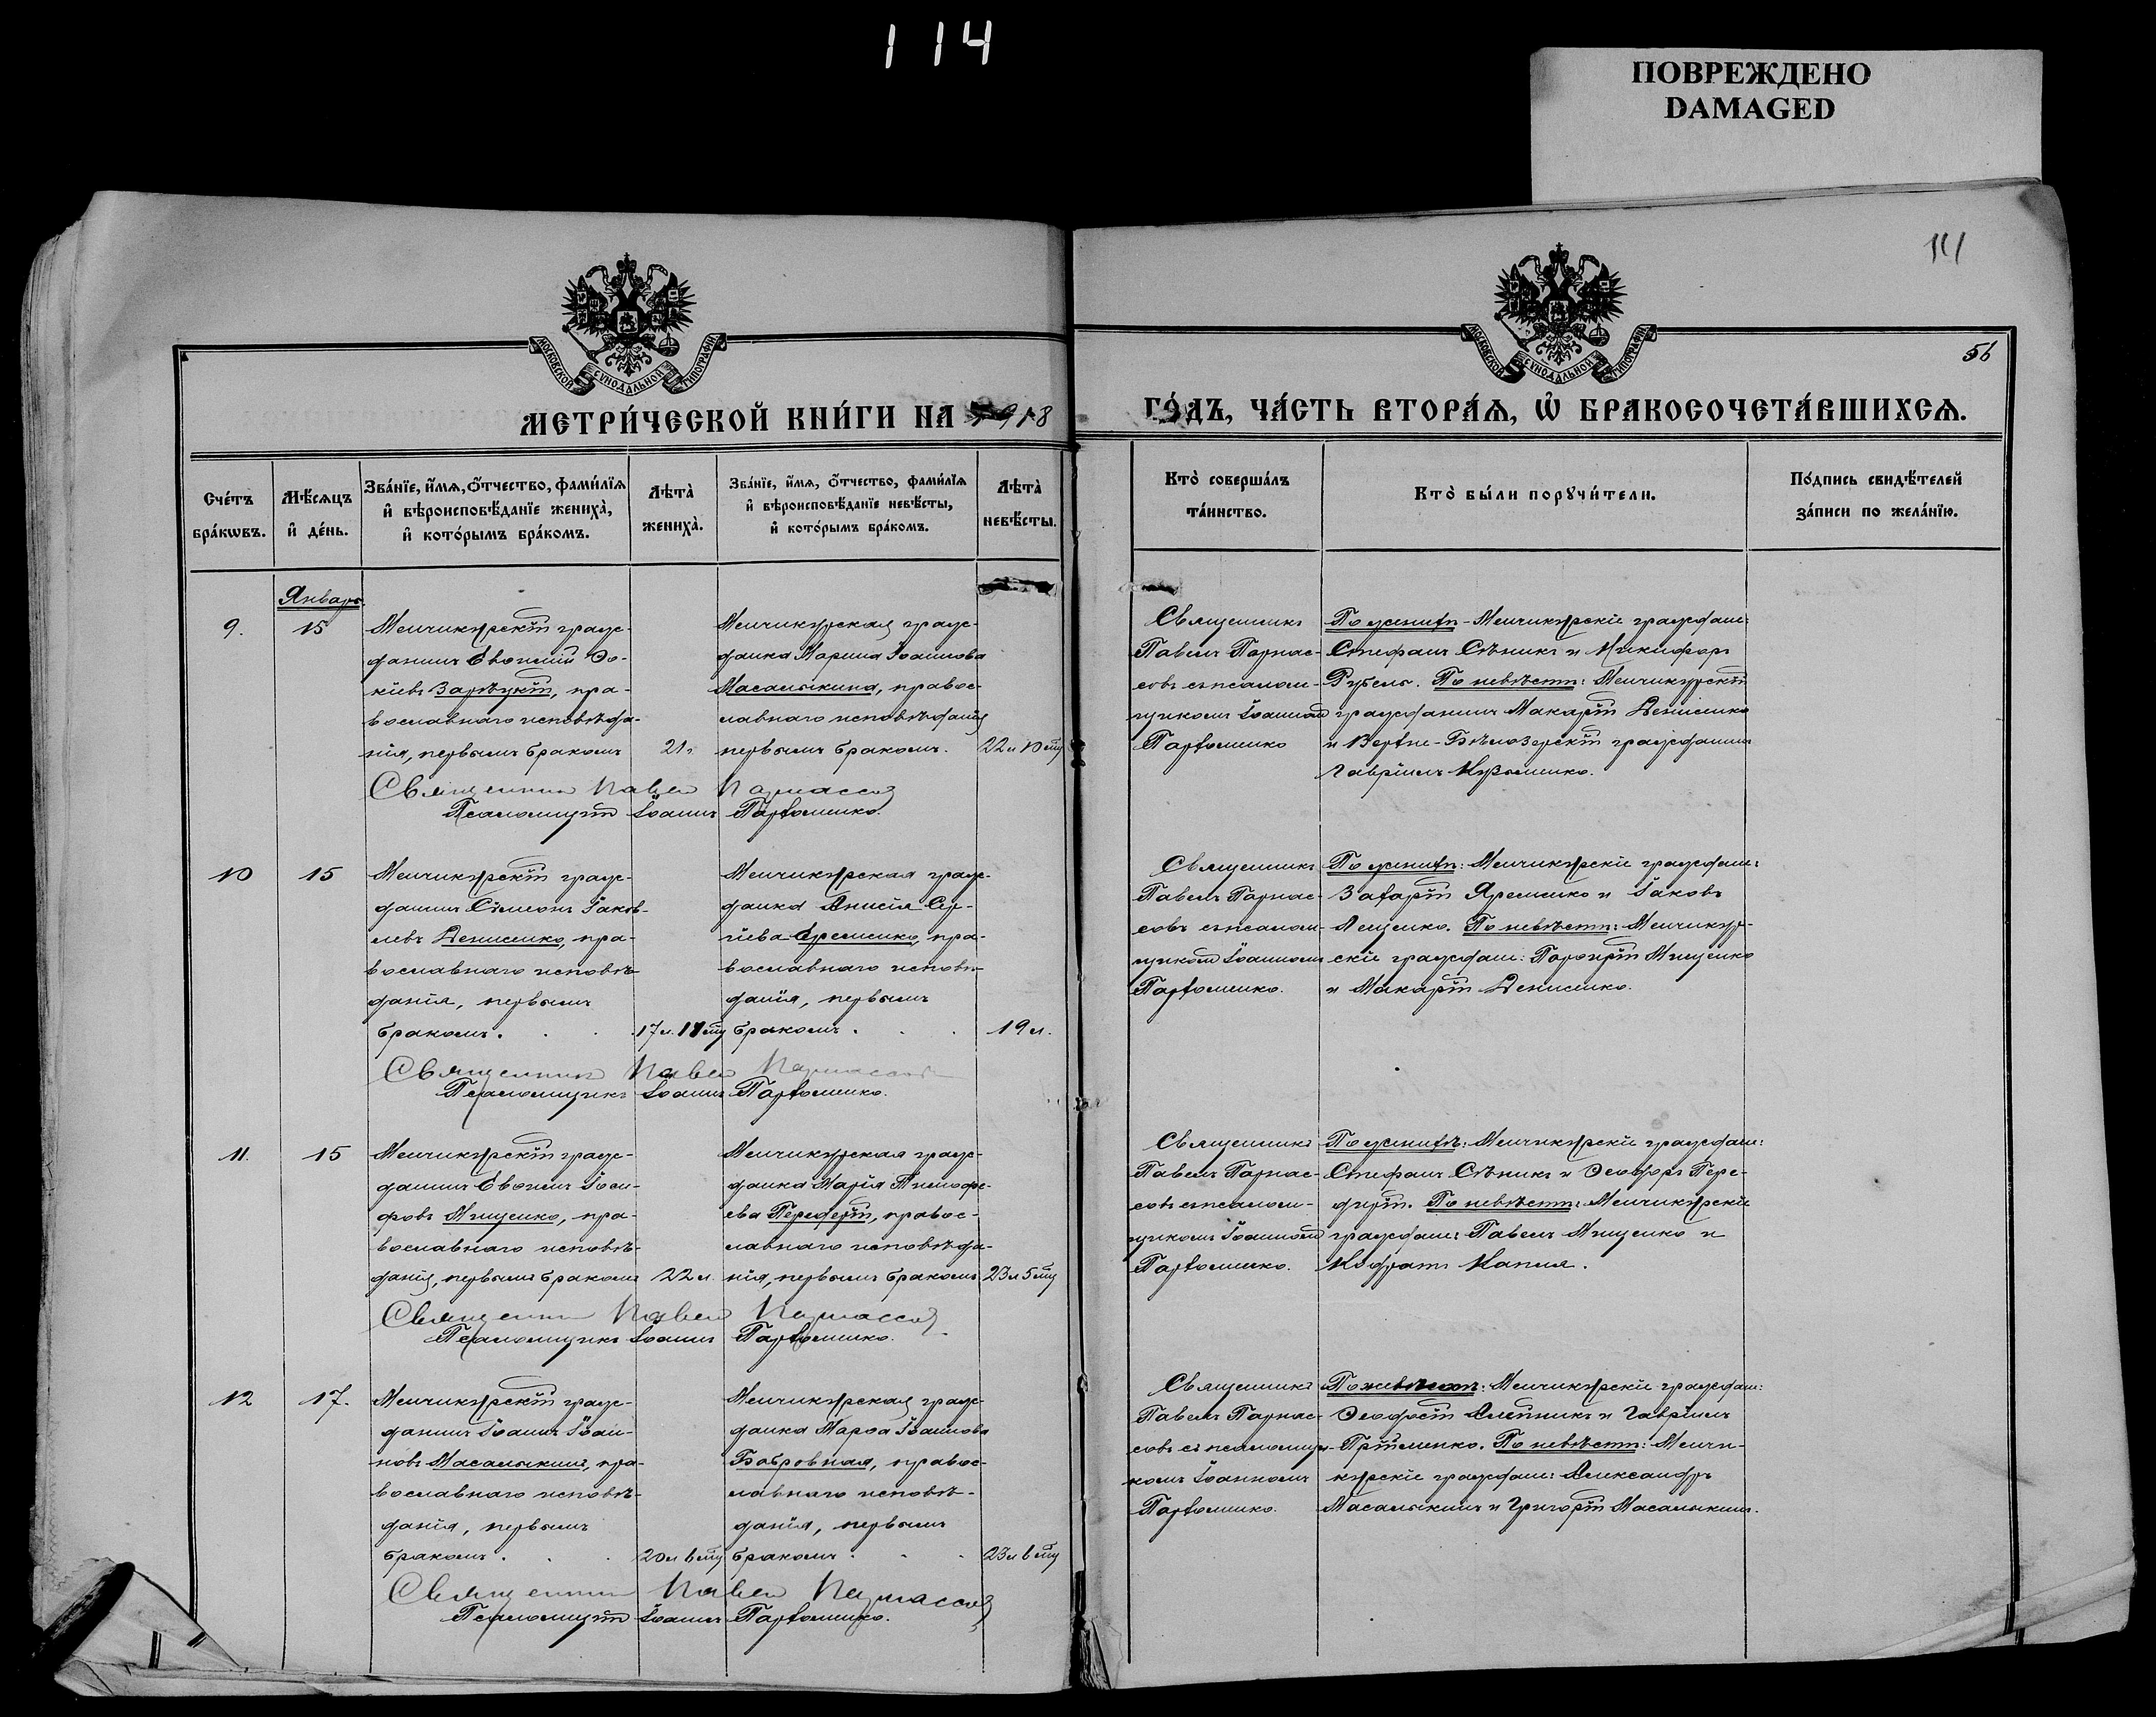 114
ПОВРЕЖДЕНО
DAMAGED
111
56
МОСКОВСКОЙ СѴНОДАЛЬНОЙ ТИПОГРАФІИ
МОСКОВСКОЙ СѴНОДАЛЬНОЙ ТИПОГРАФІИ
МЕТРИ́ЧЕСКОЙ КНИ́ГИ НА 1918
ГО́ДЪ, ЧА́СТЬ ВТОРА́Я, Ѡ҆ БРАКОСОЧЕТА́ВШИХСЯ.
Сче́тъ
бра́кѡвъ.
Мѣ́сяцъ
и҆ де́нь.
Зва́нїе, и҆́мя, ѻ҆́тчество, фами́лїя
и҆ вѣроисповѣ́данїе жениха̀,
и҆ кото́рымъ бра́комъ.
Лѣта̀
жениха̀.
Зва́нїе, и҆́мя, ѻ҆́тчество, фами́лїя
и҆ вѣроисповѣ́данїе невѣ́сты,
и҆ кото́рымъ бра́комъ.
Лѣта̀
невѣ́сты.
Кто̀ соверша́лъ
та́инство.
Кто̀ бы́ли порꙋчи́тели.
По́дпись свидѣ́телей
за́писи по жела́нїю.
Январь.
9.
15
Менчикурскій граж-
данинъ Евфимій Фо-
кіевъ Зарѣцкій, пра-
вославнаго исповѣда-
нія, первымъ бракомъ
21 г.
Менчикурская граж-
данка Марина Іоаннова
Масалыкина, правос-
лавнаго исповѣданія
первымъ бракомъ.
22 л 10 мц
Священникъ
Павелъ Парнас-
совъ съ псалом-
щикомъ Іоанномъ
Парфоменко
По женихѣ - Менчикурскіе граждане:
Стефанъ Сѣникъ и Никифоръ
Рубель. По невѣстѣ: Менчикурскій
гражданинъ Макарій Денисенко
и Верхне-Бѣлозерскій гражданинъ
Гавріилъ Кузьменко.
Священник Павел Парнассов
Псаломщик Іоаннъ Парфоменко.
10
15
Менчикурскій граж-
данинъ Сѵмеонъ Іаков-
левъ Денисенко, пра-
вославнаго исповѣ-
данія, первымъ
бракомъ.
17 л. 11 мц
Менчикурская граж-
данка Анисія Сер-
гіева Еременко, пра-
вославнаго исповѣ-
данія, первымъ
бракомъ.
19 л.
Священникъ
Павелъ Парнас-
совъ съ псалом-
щикомъ Іоанномъ
Парфоменко.
По женихѣ: Менчикурскіе граждане:
Захарій Яременко и Іаковъ
Лещенко. По невѣстѣ: Менчикур-
скіе граждане: Порфирій Мищенко
и Макарій Денисенко.
Священник Павел Парнассов
Псаломщикъ Іоаннъ Парфоменко.
11.
15
Менчикурскій граж-
данинъ Евфимъ Іоси-
фовъ Мищенко, пра-
вославнаго исповѣ-
данія, первымъ бракомъ
22 л.
Менчикурская граж-
данка Марія Тимофе-
ева Передерій, правос-
лавнаго исповѣда-
нія, первымъ бракомъ
23 л 5 мц
Священникъ
Павелъ Парнас-
совъ съ псалом-
щикомъ Іоанномъ
Парфоменко.
По женихѣ: Менчикурскіе граждане:
Стефанъ Сѣникъ и Ѳеодоръ Пере-
дерій. По невѣстѣ: Менчикурскіе
граждане: Павелъ Мищенко и
Кодратъ Капля.
Священник Павел Парнассов
Псаломщикъ Іоаннъ Парфоменко.
12
17.
Менчикурскій граж-
данинъ Іоаннъ Іоан-
новъ Масалыкинъ, пра-
вославнаго исповѣ-
данія, первымъ
бракомъ.
20 л 6 мц
Менчикурская граж-
данка Марфа Іоаннова
Бобровная, правос-
лавнаго исповѣ-
данія, первымъ
бракомъ.
23 л 6 мц
Священникъ
Павелъ Парнас-
совъ съ псаломщи-
комъ Іоанномъ
Парфоменко.
Менчикурскіе граждане:
Ѳеодосій Олейникъ и Гавріилъ
Пріименко. По невѣстѣ: Менчи-
курскіе граждане: Александръ
Масалыкинъ и Григорій Масалыкинъ.
Священник Павел Парнассов
Псаломщик Іоаннъ Парфоменко.